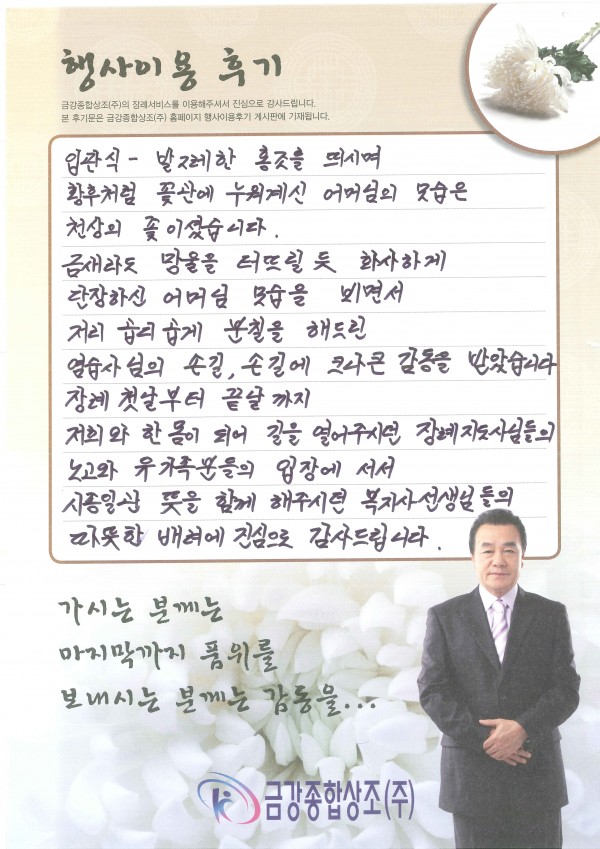 행사이용 후기
금강종합상조(주)의 장례서비스를 이용해주셔서 진심으로 감사드립니다.
본 후기문은 금강종합상조(주) 홈페이지 행사이용후기 게시판에 기재됩니다.
입관식 - 발그레한 홍조를 띄시며
황후처럼 꽃관에 누워계신 어머님의 모습은
천상의 꽃이셨습니다.
금새라도 망울을 터뜨릴 듯 화사하게
단장하신 어머님 모습을 뵈면서
저리 곱디곱게 분칠을 해드린
염습사님의 손길, 손길에 크나큰 감동을 받았습니다
장례 첫날부터 끝날까지
저희와 한 몸이 되어 길을 열어주시던 장례지도사님들의
노고와 유가족분들의 입장에 서서
시종일관 뜻을 함께 해주시던 복지사선생님들의
따뜻한 배려에 진심으로 감사드립니다.
가시는 분께는
마지막까지 품위를
보내시는 분께는 감동을...
금강종합상조(주)